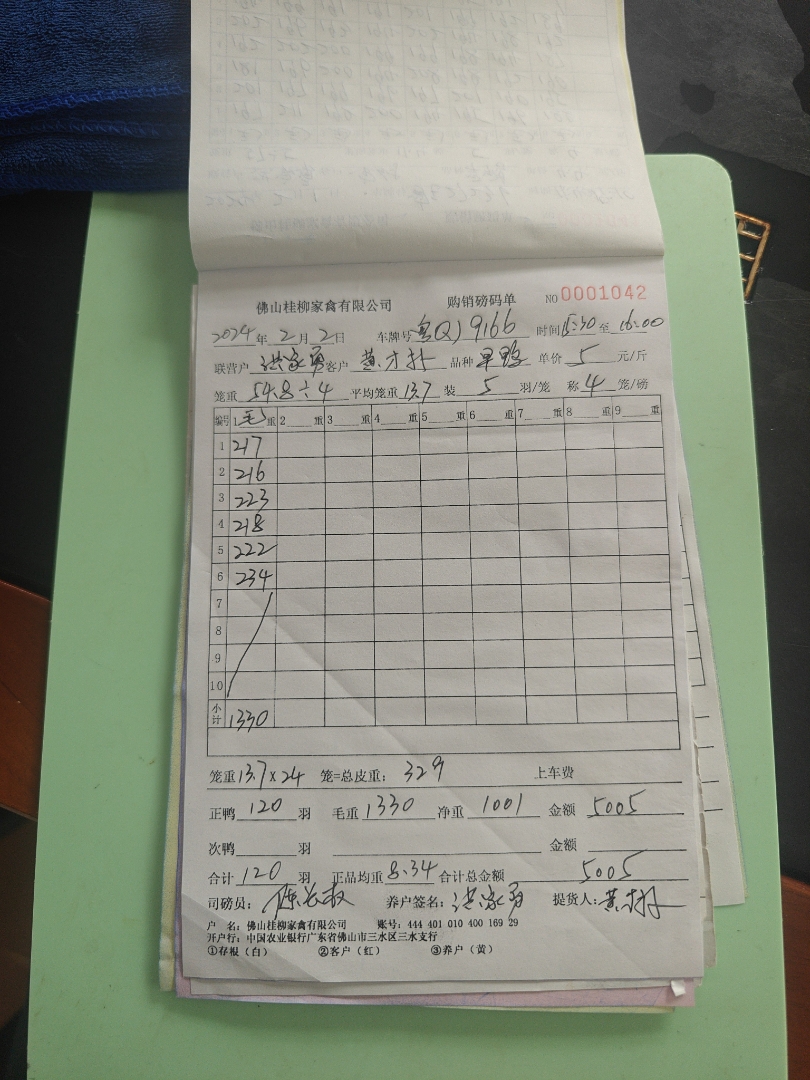 佛山桂柳家禽有限公司 购销磅码单 NO 0001042
2024年2月2日 车牌号 粤QJ9166 时间15:30至16:00
联营户 洪家勇 客户 黄才 品种 旱鸭 单价 5 元/斤
笼重 54.8÷4 平均笼重 13.7 装 5 羽/笼 称 4 笼/磅
编号 1 毛 重 2 重 3 重 4 重 5 重 6 重 7 重 8 重 9 重
1 217
2 216
3 223
4 218
5 222
6 234
7
8
9
10
小计 1330
笼重 13.7×24 笼=总皮重: 329 上车费
正鸭 120 羽 毛重 1330 净重 1001 金额 5005
次鸭 羽 金额
合计 120 羽 正品均重 8.34 合计总金额 5005
司磅员: 养户签名: 洪家勇 提货人: 黄
户 名: 佛山桂柳家禽有限公司 账号: 444 401 010 400 169 29
开户行: 中国农业银行广东省佛山市三水区三水支行
①存根(白) ②客户(红) ③养户(黄)